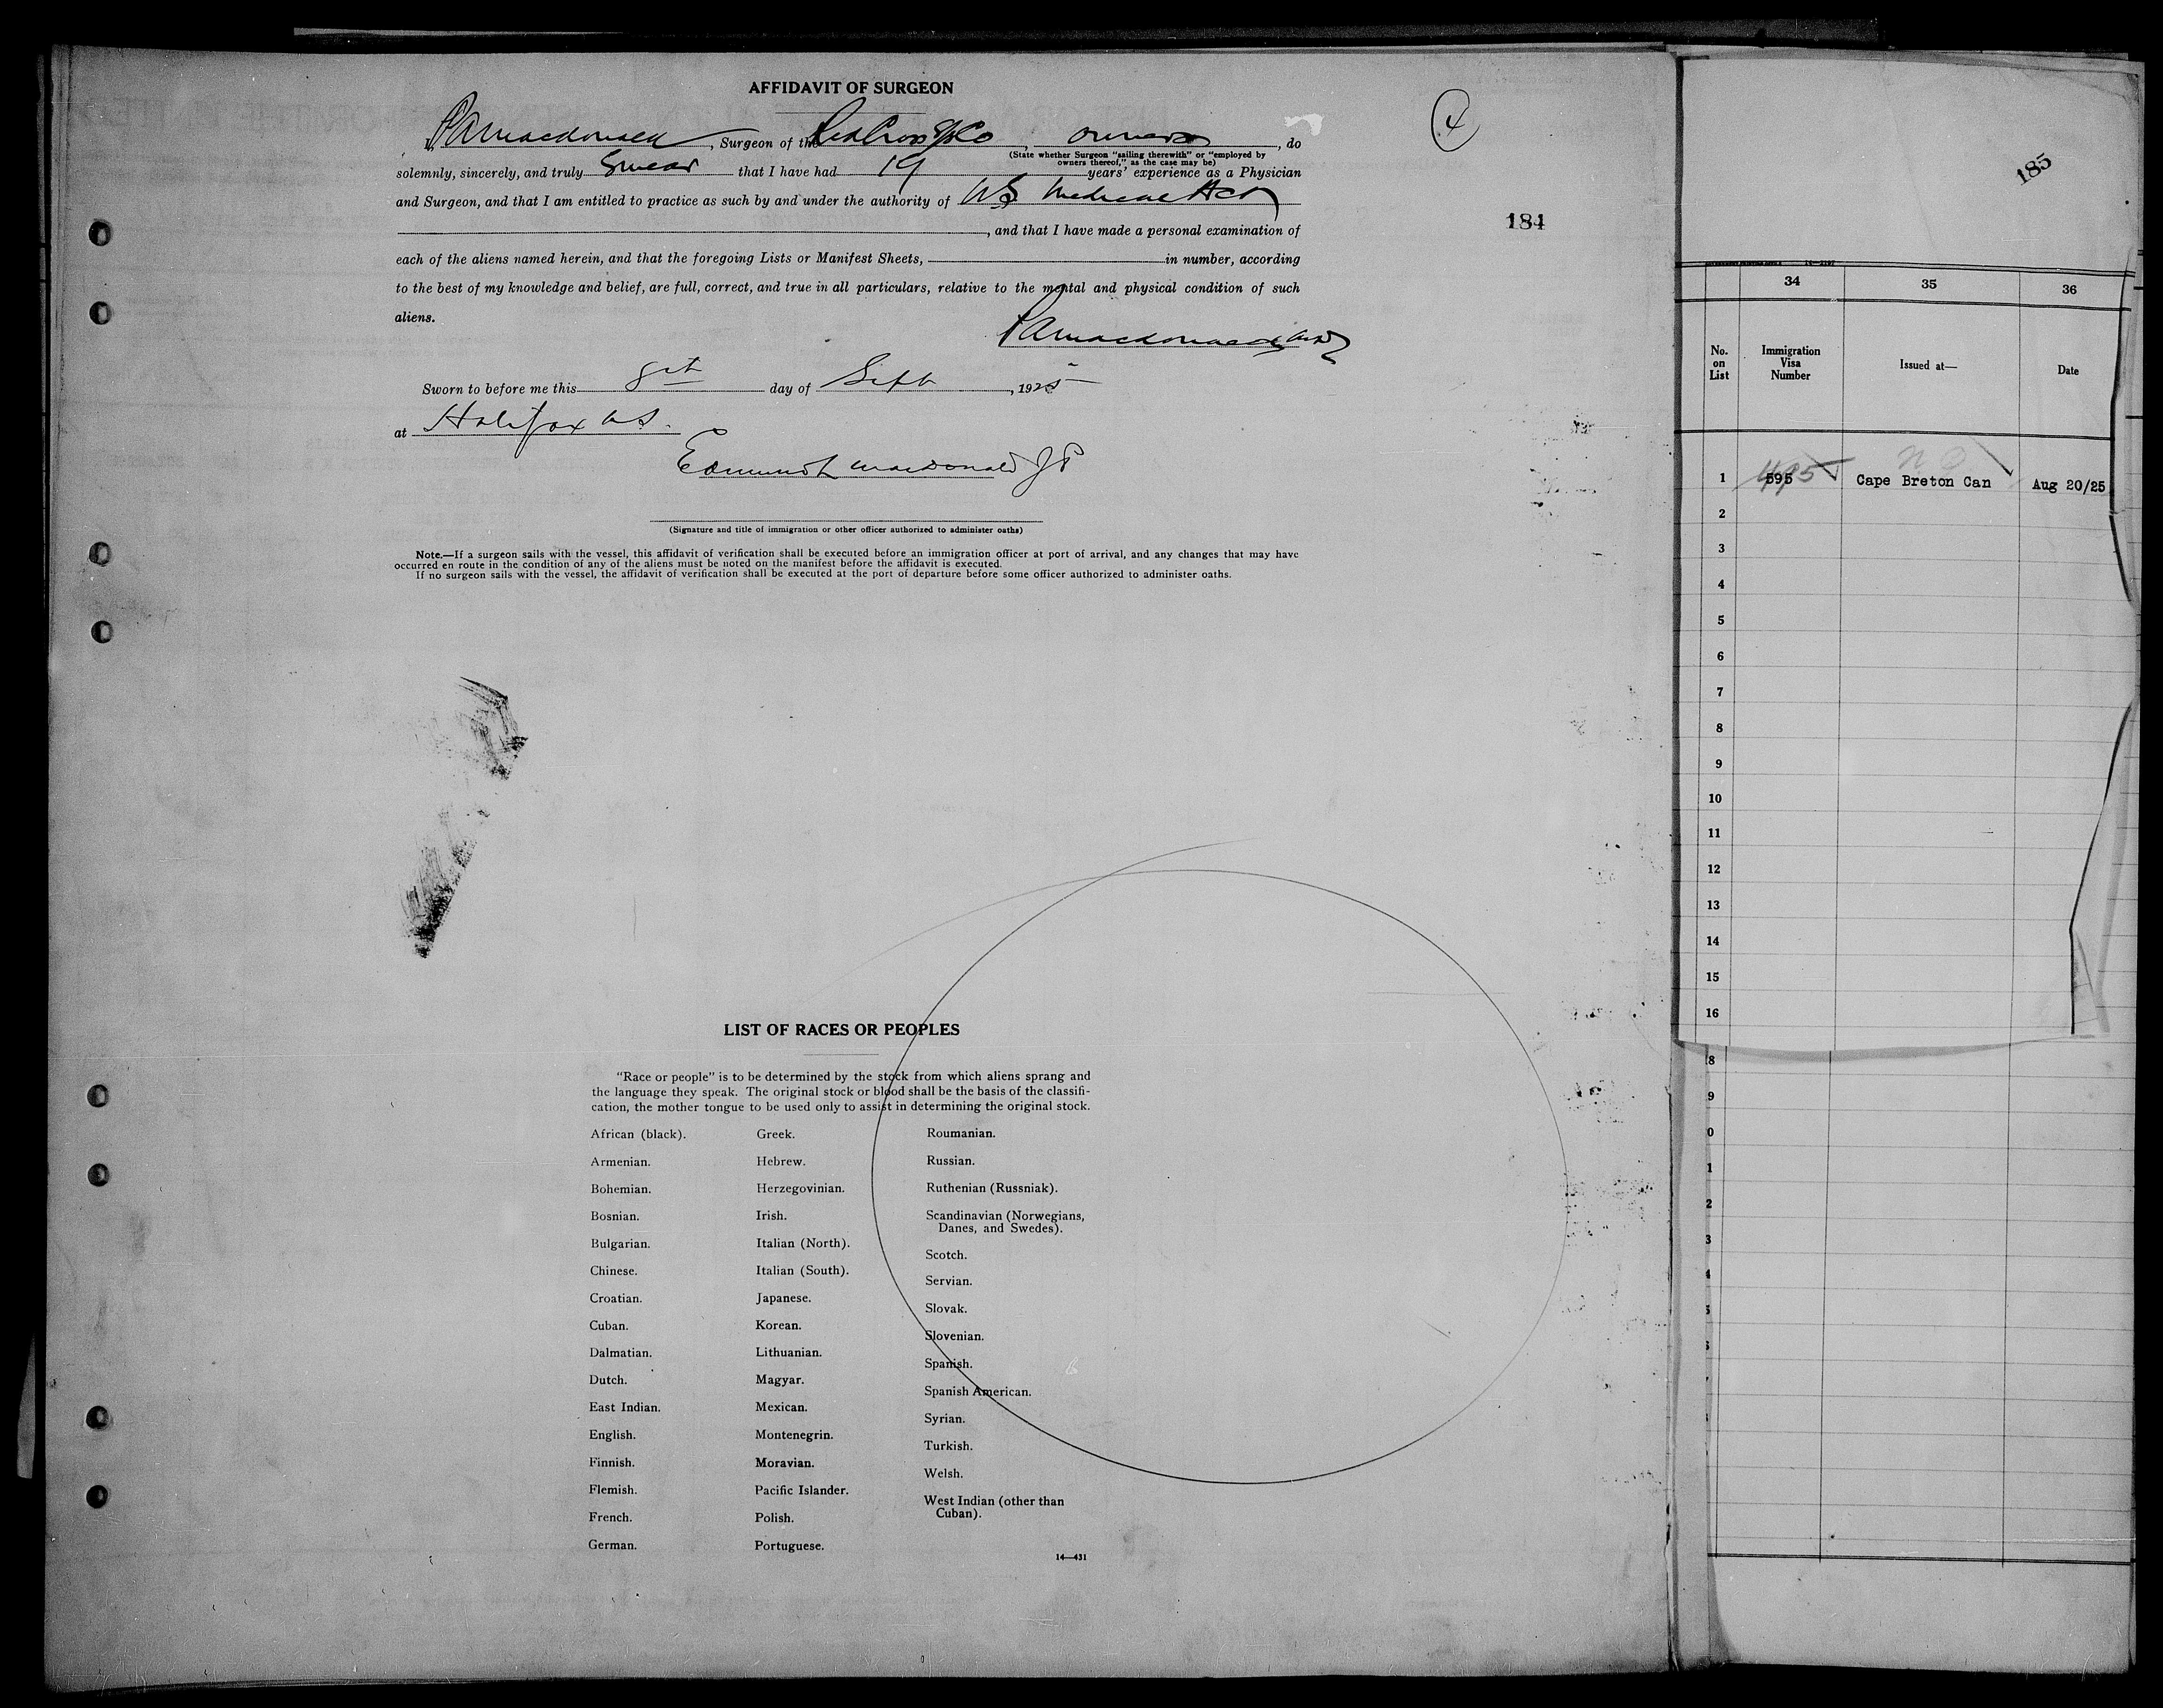 AFFIDAVIT OF SURGEON
I, P A Macdonald, Surgeon of the Red Cross SS Co, owners, do
(State whether Surgeon "sailing therewith" or "employed by
owners thereof," as the case may be)
solemnly, sincerely, and truly Swear that I have had 19 years' experience as a Physician
and Surgeon, and that I am entitled to practice as such by and under the authority of NS Medical Act
, and that I have made a personal examination of
each of the aliens named herein, and that the foregoing Lists or Manifest Sheets, in number, according
to the best of my knowledge and belief, are full, correct, and true in all particulars, relative to the mental and physical condition of such
aliens.
P A Macdonald MD
Sworn to before me this 8th day of Sept, 1925
at Halifax NS.
Edmund Macdonald JP
(Signature and title of immigration or other officer authorized to administer oaths)
Note.—If a surgeon sails with the vessel, this affidavit of verification shall be executed before an immigration officer at port of arrival, and any changes that may have
occurred en route in the condition of any of the aliens must be noted on the manifest before the affidavit is executed.
If no surgeon sails with the vessel, the affidavit of verification shall be executed at the port of departure before some officer authorized to administer oaths.
4
184
LIST OF RACES OR PEOPLES
"Race or people" is to be determined by the stock from which aliens sprang and
the language they speak. The original stock or blood shall be the basis of the classifi-
cation, the mother tongue to be used only to assist in determining the original stock.
African (black).
Armenian.
Bohemian.
Bosnian.
Bulgarian.
Chinese.
Croatian.
Cuban.
Dalmatian.
Dutch.
East Indian.
English.
Finnish.
Flemish.
French.
German.
Greek.
Hebrew.
Herzegovinian.
Irish.
Italian (North).
Italian (South).
Japanese.
Korean.
Lithuanian.
Magyar.
Mexican.
Montenegrin.
Moravian.
Pacific Islander.
Polish.
Portuguese.
Roumanian.
Russian.
Ruthenian (Russniak).
Scandinavian (Norwegians,
Danes, and Swedes).
Scotch.
Servian.
Slovak.
Slovenian.
Spanish.
Spanish American.
Syrian.
Turkish.
Welsh.
West Indian (other than
Cuban).
14—431
185
34 35 36
No.
on
List
Immigration
Visa
Number
Issued at—
Date
1 595 Cape Breton Can Aug 20/25
2
3
4
5
6
7
8
9
10
11
12
13
14
15
16
8
9
0
1
2
3
4
5